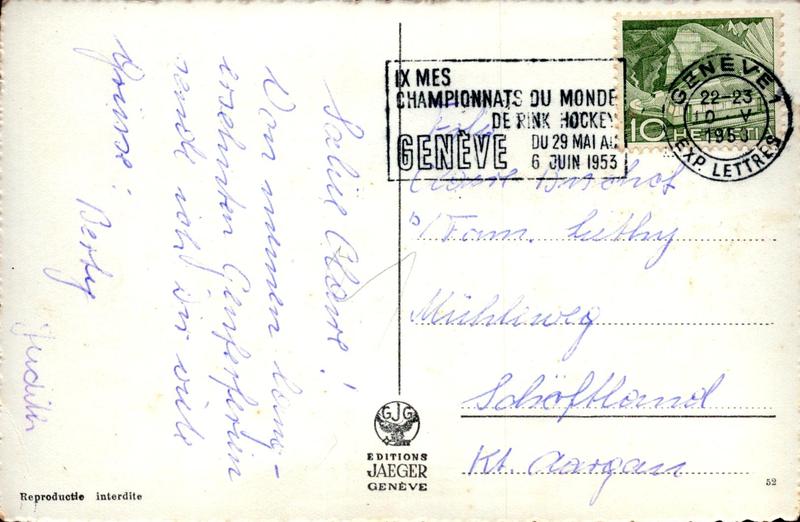 Salut Claire!
Von meinem lang-
ersehnten Genferferien
sende ich Dir viele
Grüsse! Berty
Judith
IX MES
CHAMPIONNATS DU MONDE
DE RINK HOCKEY
GENÈVE DU 29 MAI AU
6 JUIN 1953
GENÈVE 1
22-23
10 V
1953
EXP. LETTRES
10 HELVETIA
Claire
c/ Fam. Lüthy
Mühleweg
Schöftland
Kt. Aargau
GJG
EDITIONS
JAEGER
GENÈVE
Reproductie interdite
52